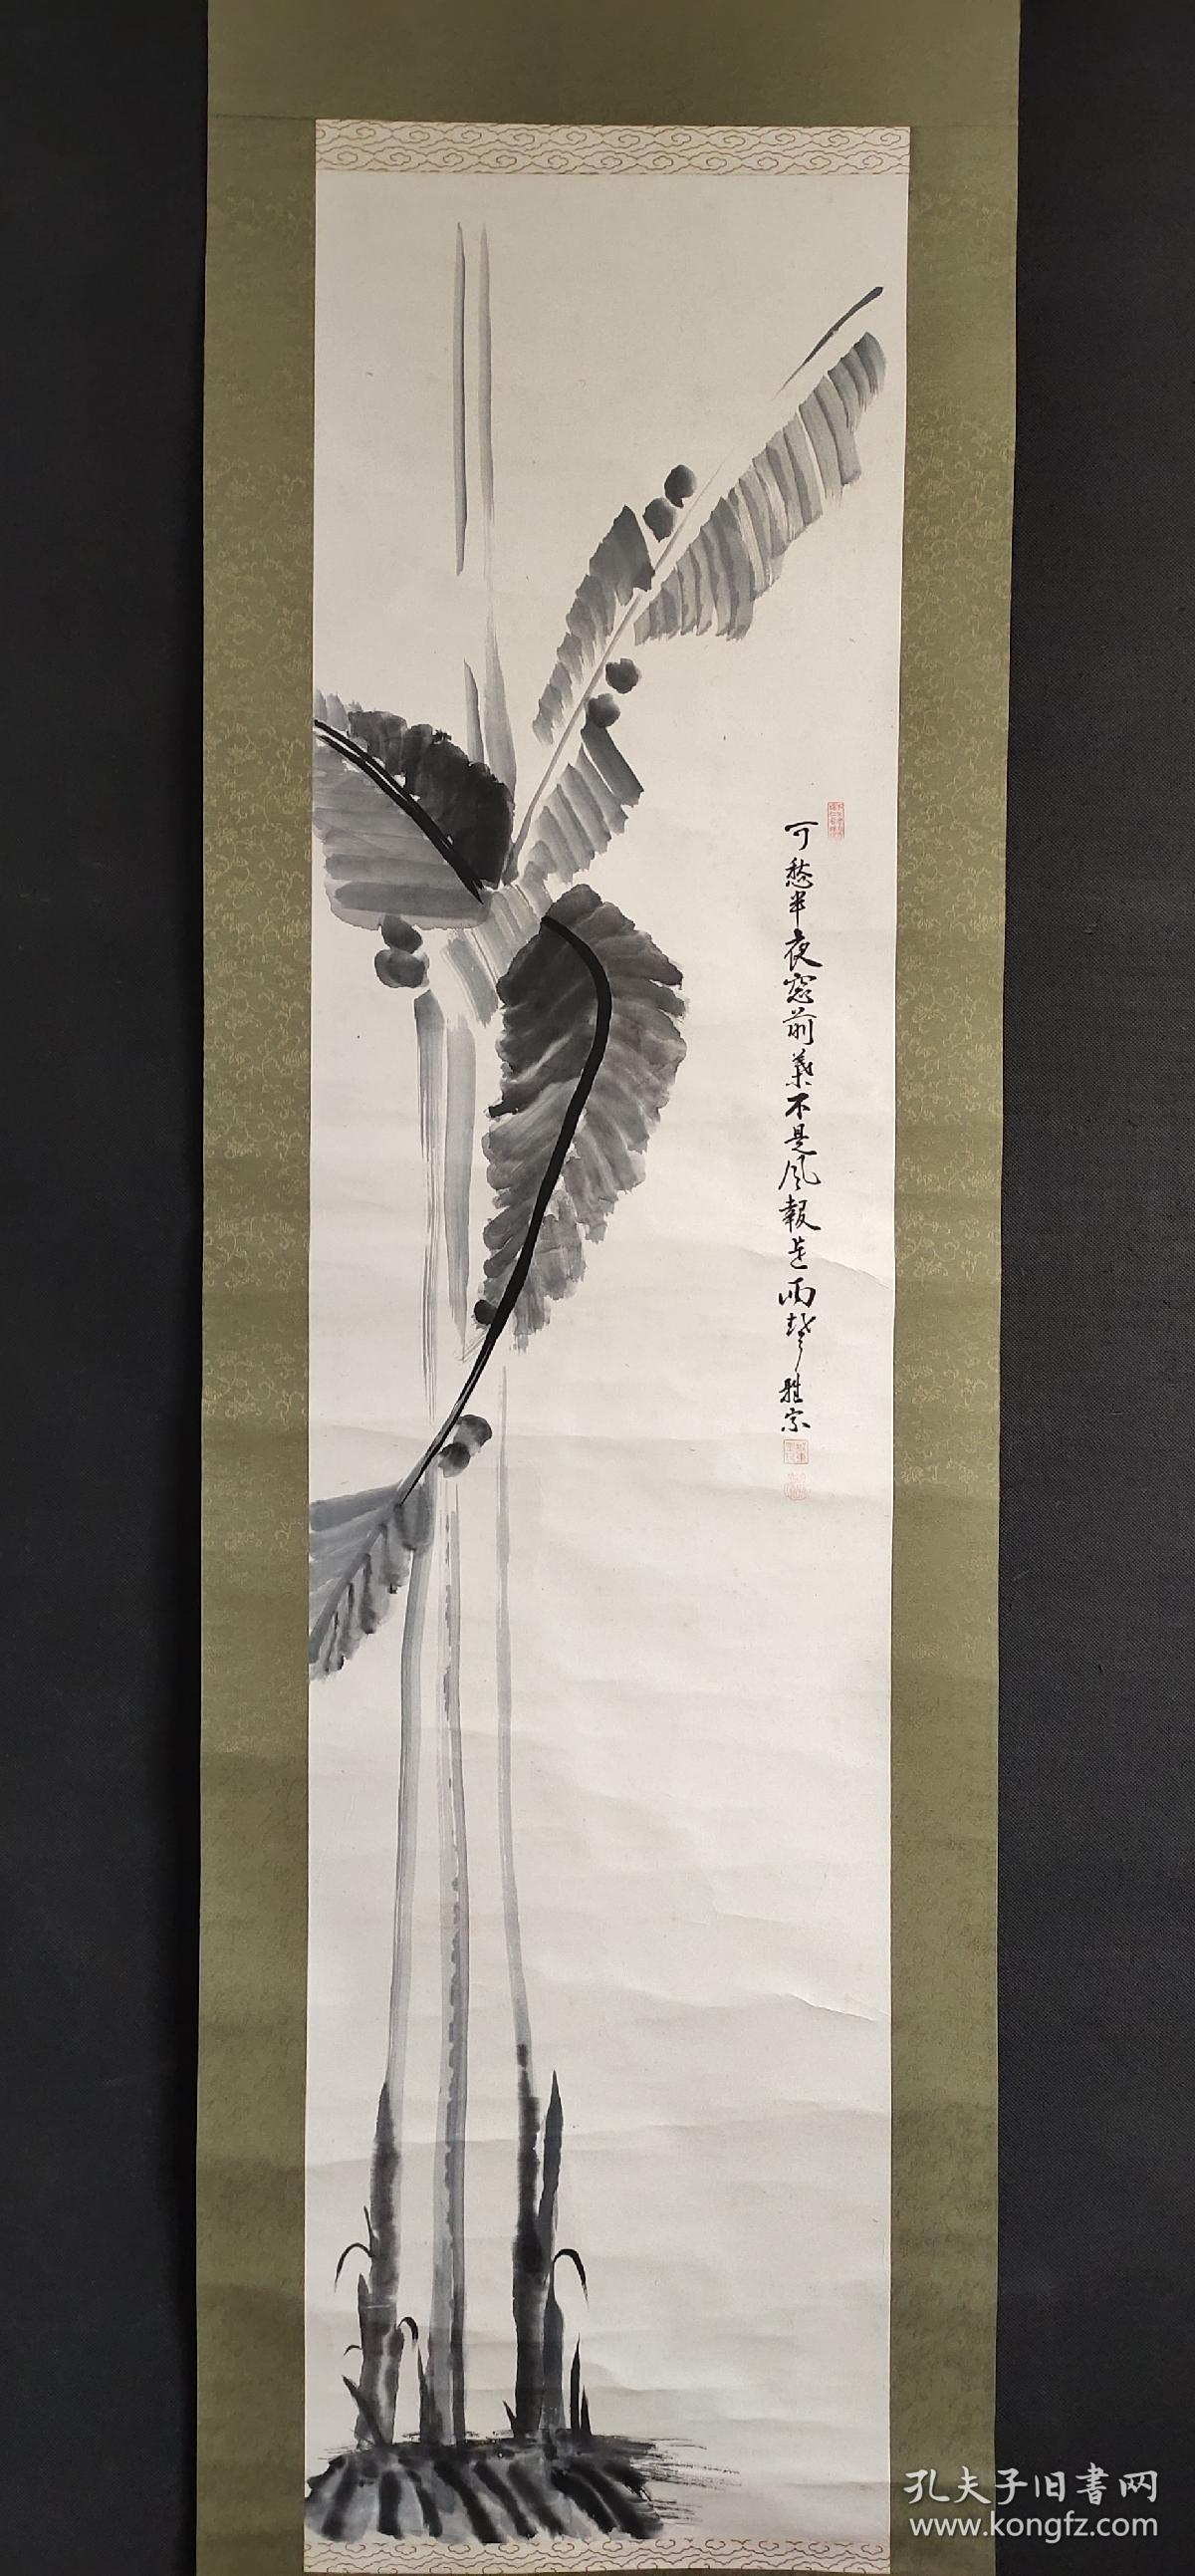 可愁半夜窓前葉不是風報是雨聲 雅宗
孔夫子旧書网
www.kongfz.com